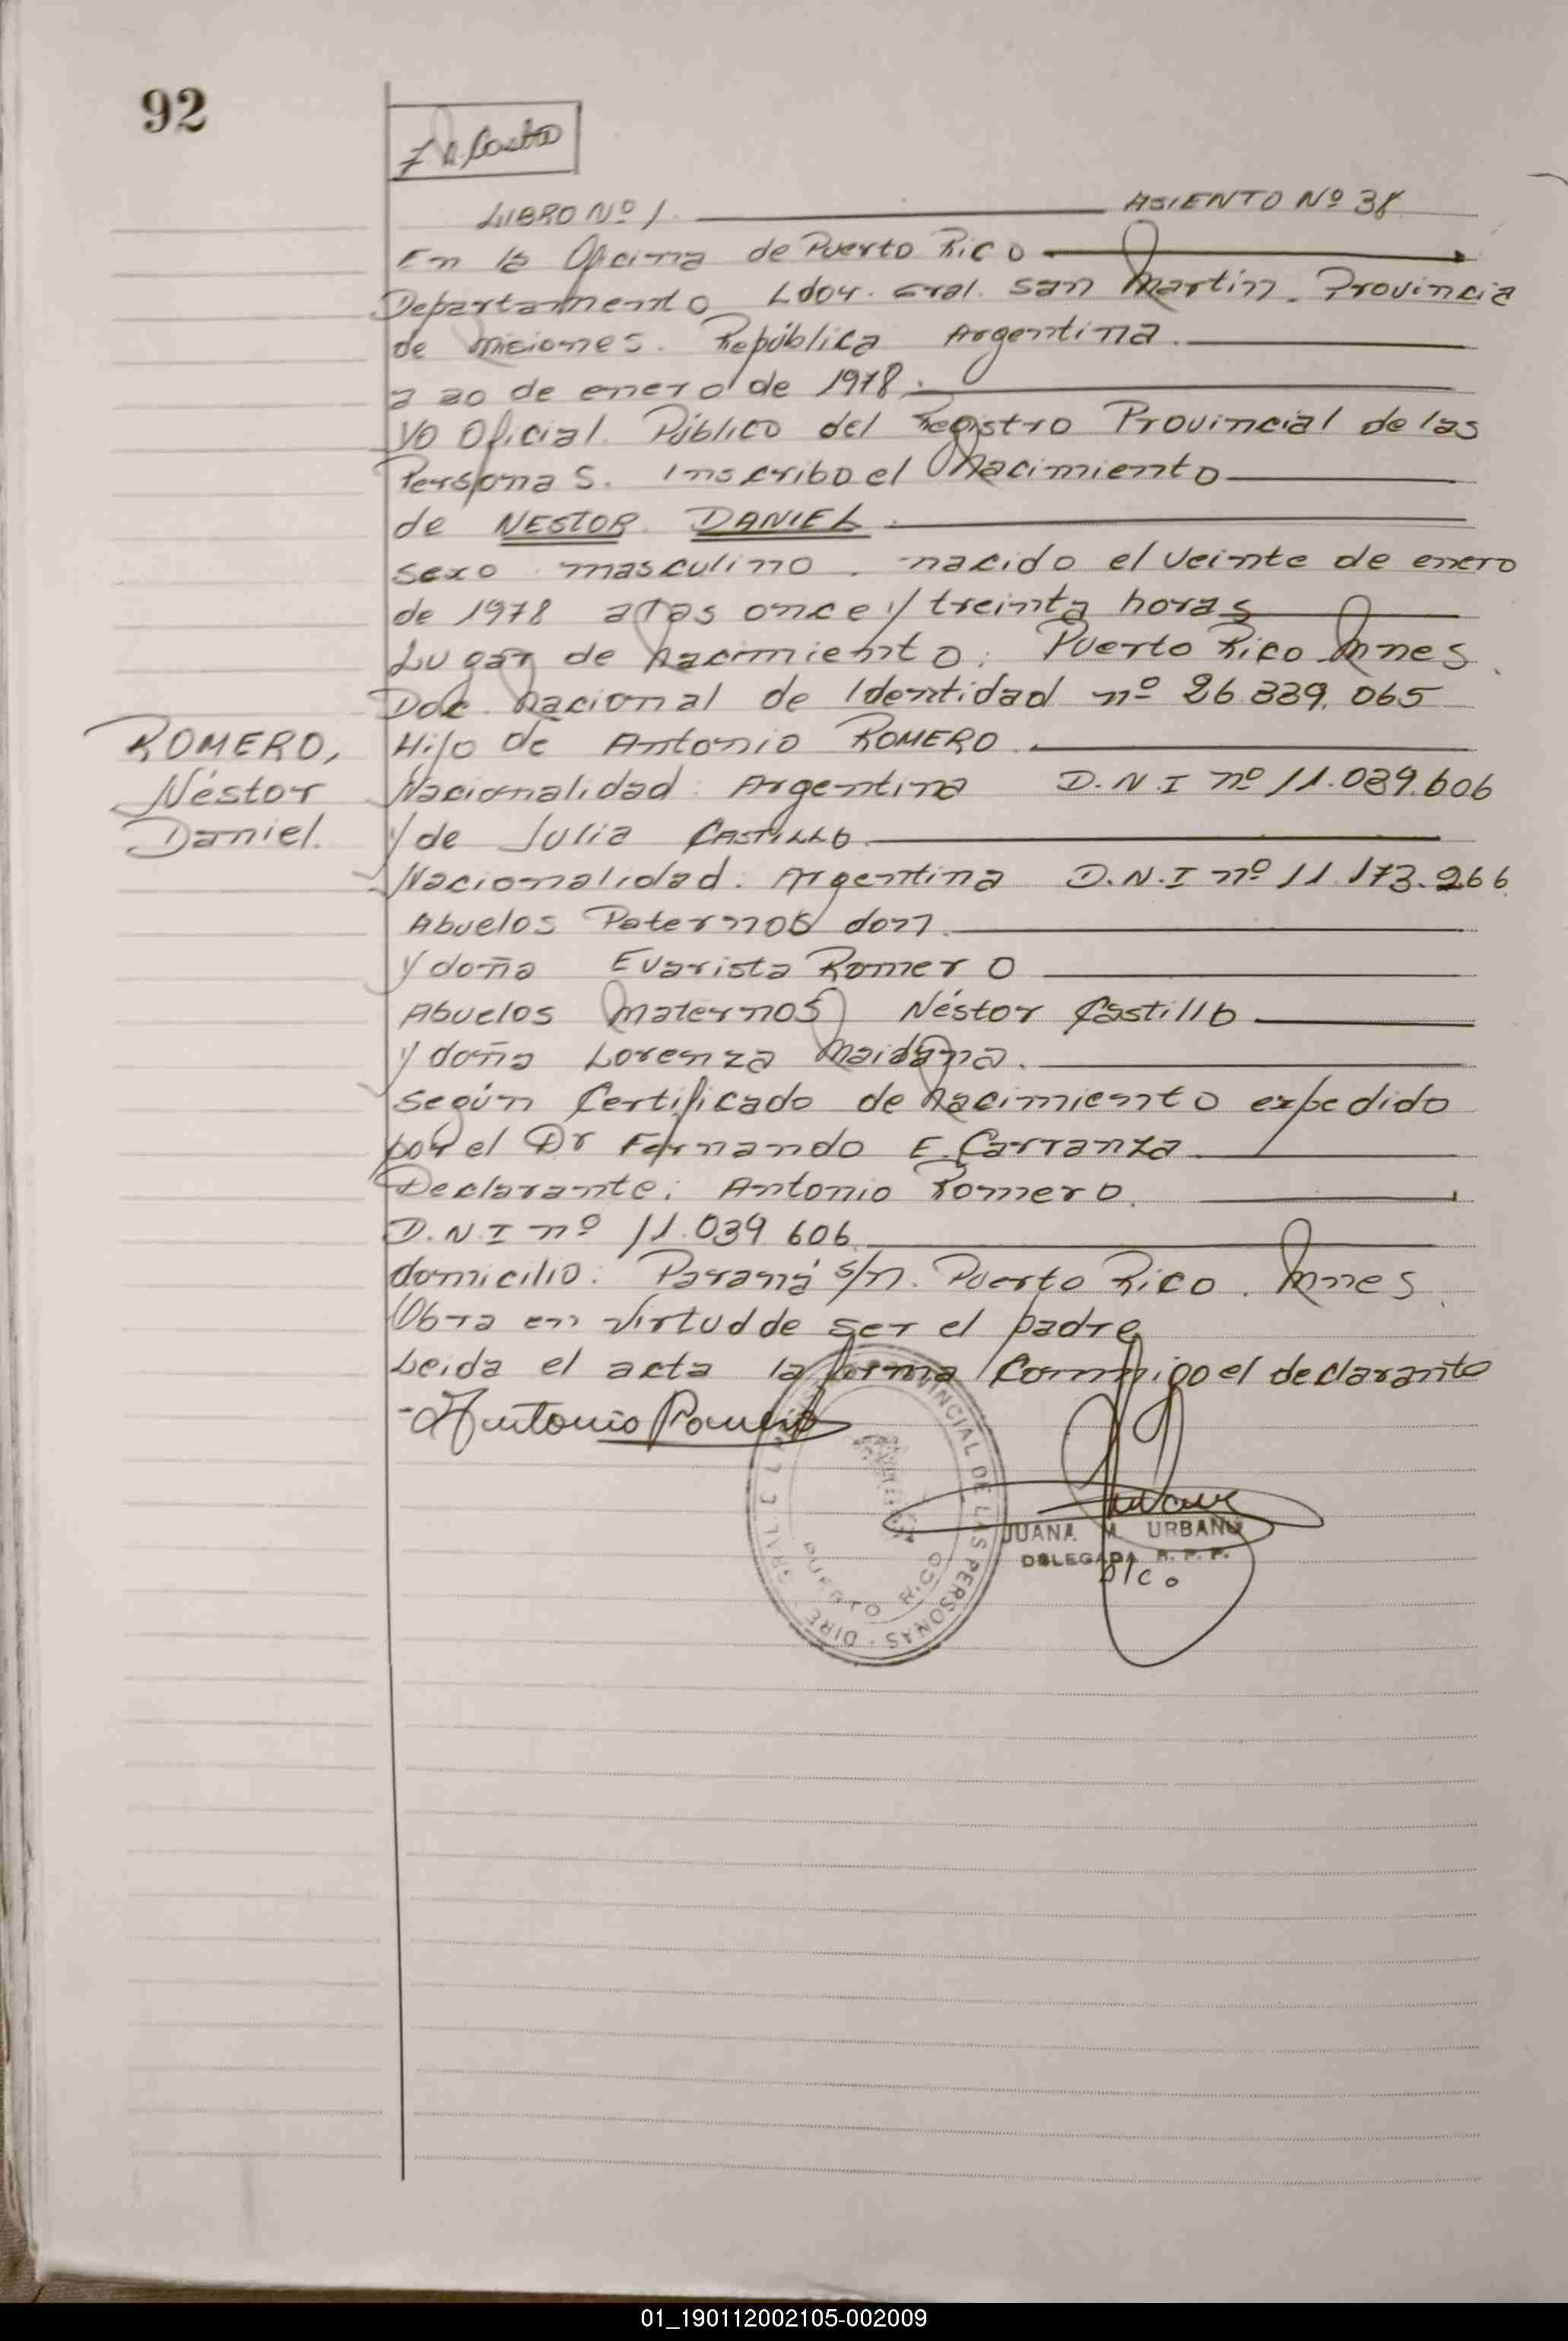 92
LIBRO Nº 1. ASIENTO Nº 38
En la Oficina de Puerto Rico
Departamento Ldor. Gral. San Martín. Provincia
de Misiones. República Argentina.
a 20 de enero de 1978.
Yo Oficial Público del Registro Provincial de las
Personas. Inscribo el Nacimiento
de NESTOR DANIEL.
sexo masculino. nacido el veinte de enero
de 1978 a las once y treinta horas
Lugar de Nacimiento: Puerto Rico Mnes.
Doc. Nacional de Identidad nº 26.339.065
ROMERO,
Néstor
Daniel.
Hijo de Antonio ROMERO.
Nacionalidad: Argentina D.N.I nº 11.039.606
y de Julia CASTILLO.
Nacionalidad: Argentina D.N.I nº 11.173.266.
Abuelos Paternos don.
y doña Evarista Romero
Abuelos Maternos Néstor Castillo
y doña Lorenza Maidana.
según Certificado de Nacimiento expedido
por el Dr Fernando E. Carranza
Declarante: Antonio Romero.
D.N.I nº 11.039 606
domicilio: Paraná s/n. Puerto Rico. Mnes.
Obra en virtud de ser el padre
Leida el acta la firma Conmigo el declarante
Antonio Romero
PROVINCIAL DE LAS PERSONAS - DIRE
GRAL.
PUERTO RICO
JUANA M. URBANO
DELEGADA R.P.P.
Rico
01_190112002105-002009